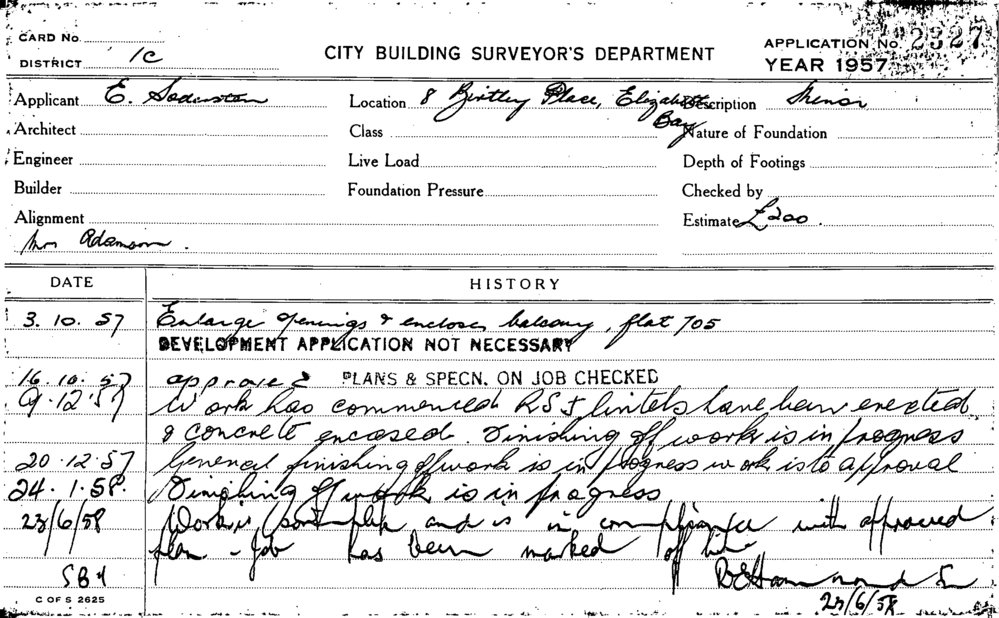 CARD No.
DISTRICT 1C
CITY BUILDING SURVEYOR'S DEPARTMENT
APPLICATION No. 2327
YEAR 1957
Applicant E. Soderston
Location 8 Birtley Place, Elizabeth Bay
Description Minor
Architect
Class
Nature of Foundation
Engineer
Live Load
Depth of Footings
Builder
Foundation Pressure
Checked by
Alignment
Estimate £200.
Mr Adamson.
DATE
HISTORY
3. 10. 57 Enlarge openings & enclose balcony, flat 705
DEVELOPMENT APPLICATION NOT NECESSARY
16. 10. 57 approved PLANS & SPECN. ON JOB CHECKED
9. 12. 57 Work has commenced RSJ lintels have been erected
& concrete encased. Finishing off work is in progress
20. 12. 57 General finishing off work is in progress work is to approval
24. 1. 58. Finishing off work is in progress
23/6/58 Work is complete and is in compliance with approved
plan - Job has been marked off
C OF S 2625
23/6/58